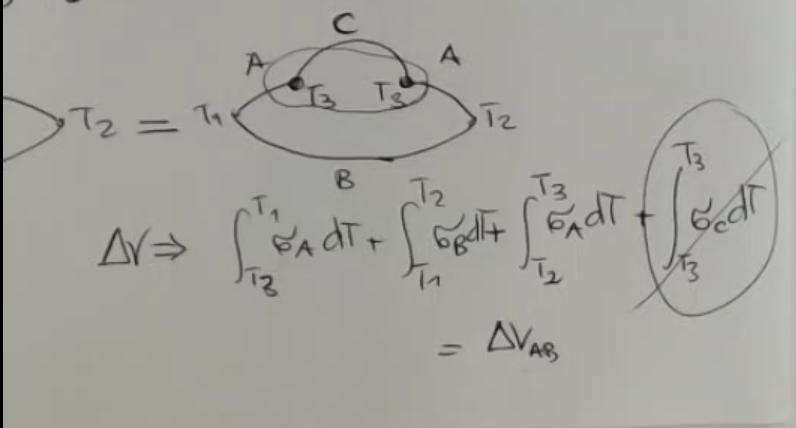 C
A A
T₃ T₃
T₂ = T₁ T₂
B
ΔV ⇒ ∫_{T₃}^{T₁} σ_A dT + ∫_{T₁}^{T₂} σ_B dT + ∫_{T₂}^{T₃} σ_A dT + ∫_{T₃}^{T₃} σ_C dT
= ΔV_{AB}